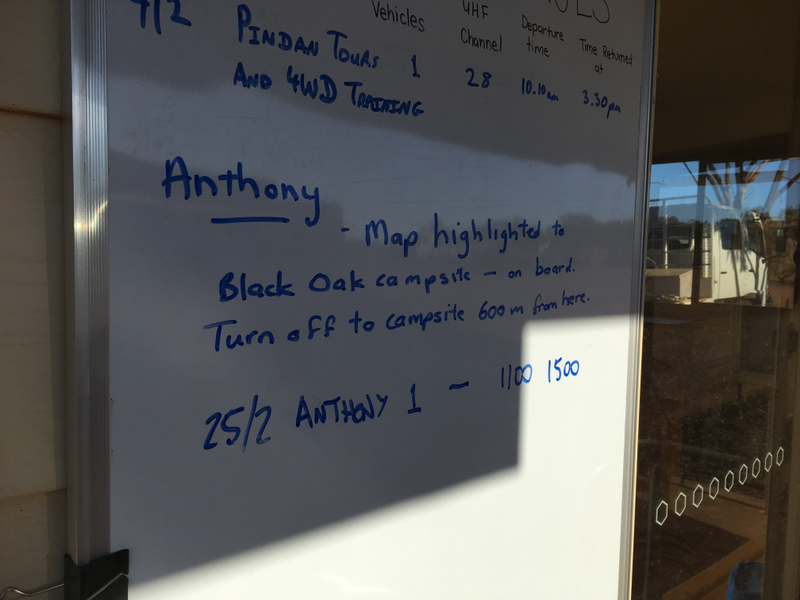 Vehicles UHF Departure Time Returned
Channel time at
7/2 PINDAN TOURS 1 28 10.10am 3.30pm
AND 4WD TRAINING
Anthony
- Map highlighted to
Black Oak campsite - on board.
Turn off to campsite 600m from here.
25/2 ANTHONY 1 - 1100 1500